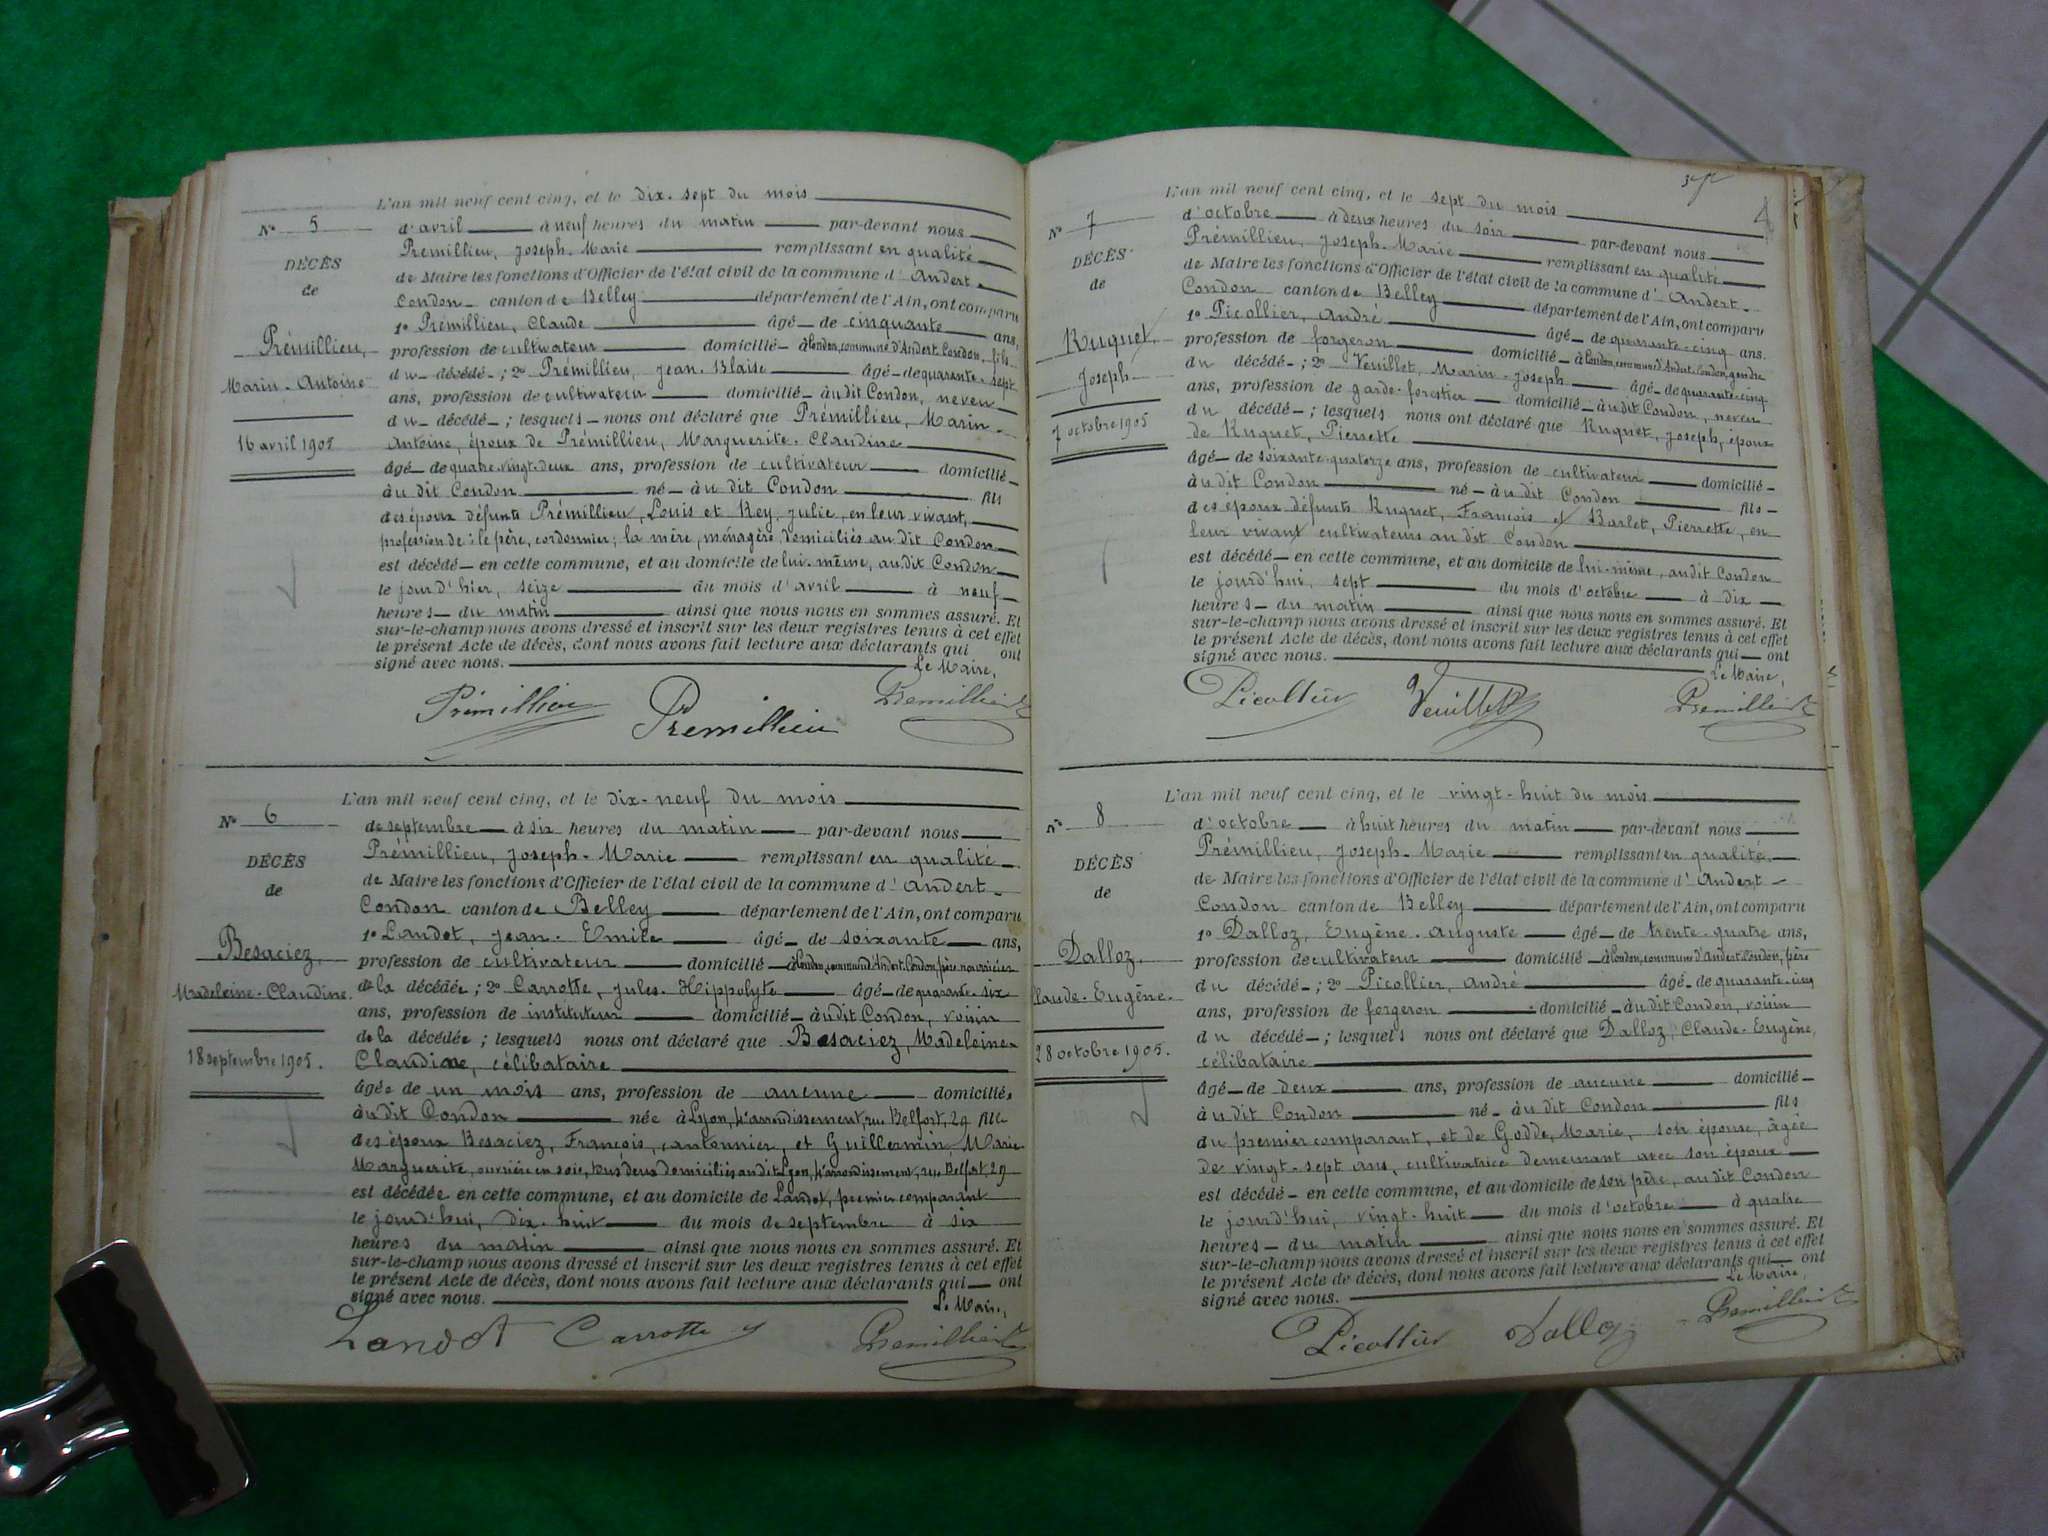 L'an mil neuf cent cinq, et le dix-sept du mois
N° 5
d'avril à neuf heures du matin par-devant nous
Prémillieu, Joseph-Marie remplissant en qualité
DÉCÈS
de Maire les fonctions d'Officier de l'état civil de la commune d'Andert-
de
Condon canton de Belley département de l'Ain, ont comparu
1° Prémillieu, Claude âgé de cinquante ans,
Prémillieu,
profession de cultivateur domicilié à Condon, commune d'Andert-Condon, fils
du décédé ; 2° Prémillieu, Jean-Blaise âgé de quarante-sept
Marin-Antoine
ans, profession de cultivateur domicilié au dit Condon, neveu
du décédé ; lesquels nous ont déclaré que Prémillieu, Marin-
16 avril 1905
Antoine, époux de Prémillieu, Marguerite-Claudine
âgé de quatre-vingt-deux ans, profession de cultivateur domicilié
au dit Condon né au dit Condon fils
des époux défunts Prémillieu, Louis et Rey, Julie, en leur vivant,
profession de : le père, cordonnier ; la mère, ménagère, domiciliés au dit Condon
est décédé en cette commune, et au domicile de lui-même, au dit Condon
le jour d'hier, seize du mois d'avril à neuf
heures du matin ainsi que nous nous en sommes assuré. Et
sur-le-champ nous avons dressé et inscrit sur les deux registres tenus à cet effet
le présent Acte de décès, dont nous avons fait lecture aux déclarants qui ont
signé avec nous. Le Maire,
Prémillieu Premillieu Premillieu
L'an mil neuf cent cinq, et le dix-neuf du mois
N° 6
de septembre à six heures du matin par-devant nous
Prémillieu, Joseph-Marie remplissant en qualité
DÉCÈS
de Maire les fonctions d'Officier de l'état civil de la commune d'Andert-
de
Condon canton de Belley département de l'Ain, ont comparu
1° Landot, Jean-Emile âgé de soixante ans,
Besaciez,
profession de cultivateur domicilié à Condon, commune d'Andert-Condon, père nourricier
Madeleine-Claudine.
de la décédée ; 2° Carrotte, Jules-Hippolyte âgé de quarante-six
ans, profession de instituteur domicilié au dit Condon, voisin
de la décédée ; lesquels nous ont déclaré que Besaciez, Madeleine-
18 septembre 1905.
Claudine, célibataire
âgée de un mois ans, profession de aucune domiciliée
au dit Condon née à Lyon, 4e arrondissement, rue Belfort, 29 fille
des époux Besaciez, François, cantonnier, et Guillermin, Marie
Marguerite, ouvrière en soie, tous deux domiciliés au dit Lyon, 4e arrondissement, rue Belfort, 29
est décédée en cette commune, et au domicile de Landot, premier comparant
le jourd'hui, dix-huit du mois de septembre à six
heures du matin ainsi que nous nous en sommes assuré. Et
sur-le-champ nous avons dressé et inscrit sur les deux registres tenus à cet effet
le présent Acte de décès, dont nous avons fait lecture aux déclarants qui ont
signé avec nous. Le Maire,
Landot Carrotte Premillieu
4
L'an mil neuf cent cinq, et le sept du mois
N° 7
d'octobre à deux heures du soir par-devant nous
Prémillieu, Joseph-Marie remplissant en qualité
DÉCÈS
de Maire les fonctions d'Officier de l'état civil de la commune d'Andert-
de
Condon canton de Belley département de l'Ain, ont comparu
1° Picollier, André âgé de quarante-cinq ans.
Ruguet,
profession de forgeron domicilié à Condon, commune d'Andert-Condon, gendre
Joseph
du décédé ; 2° Veuillet, Marin-Joseph âgé de quarante-cinq
ans, profession de garde-forestier domicilié au dit Condon, neveu
7 octobre 1905
du décédé ; lesquels nous ont déclaré que Ruguet, Joseph, époux
de Ruguet, Pierrette
âgé de soixante-quatorze ans, profession de cultivateur domicilié
au dit Condon né au dit Condon fils
des époux défunts Ruguet, François et Barlet, Pierrette, en
leur vivant cultivateurs au dit Condon
est décédé en cette commune, et au domicile de lui-même, au dit Condon
le jourd'hui, sept du mois d'octobre à dix
heures du matin ainsi que nous nous en sommes assuré. Et
sur-le-champ nous avons dressé et inscrit sur les deux registres tenus à cet effet
le présent Acte de décès, dont nous avons fait lecture aux déclarants qui ont
signé avec nous. Le Maire,
Picollier Veuillet Premillieu
L'an mil neuf cent cinq, et le vingt-huit du mois
N° 8
d'octobre à huit heures du matin par-devant nous
Prémillieu, Joseph-Marie remplissant en qualité
DÉCÈS
de Maire les fonctions d'Officier de l'état civil de la commune d'Andert-
de
Condon canton de Belley département de l'Ain, ont comparu
1° Dalloz, Eugène-Auguste âgé de trente-quatre ans,
Dalloz,
profession de cultivateur domicilié à Condon, commune d'Andert-Condon, père
Claude-Eugène.
du décédé ; 2° Picollier, André âgé de quarante-cinq
ans, profession de forgeron domicilié au dit Condon, voisin
28 octobre 1905.
du décédé ; lesquels nous ont déclaré que Dalloz, Claude-Eugène,
célibataire
âgé de deux ans, profession de aucune domicilié
au dit Condon né au dit Condon fils
du premier comparant, et de Godde, Marie, son épouse, âgée
de vingt-sept ans, cultivatrice demeurant avec son époux
est décédé en cette commune, et au domicile de son père, au dit Condon
le jourd'hui, vingt-huit du mois d'octobre à quatre
heures du matin ainsi que nous nous en sommes assuré. Et
sur-le-champ nous avons dressé et inscrit sur les deux registres tenus à cet effet
le présent Acte de décès, dont nous avons fait lecture aux déclarants qui ont
signé avec nous. Le Maire,
Picollier Dalloz Premillieu